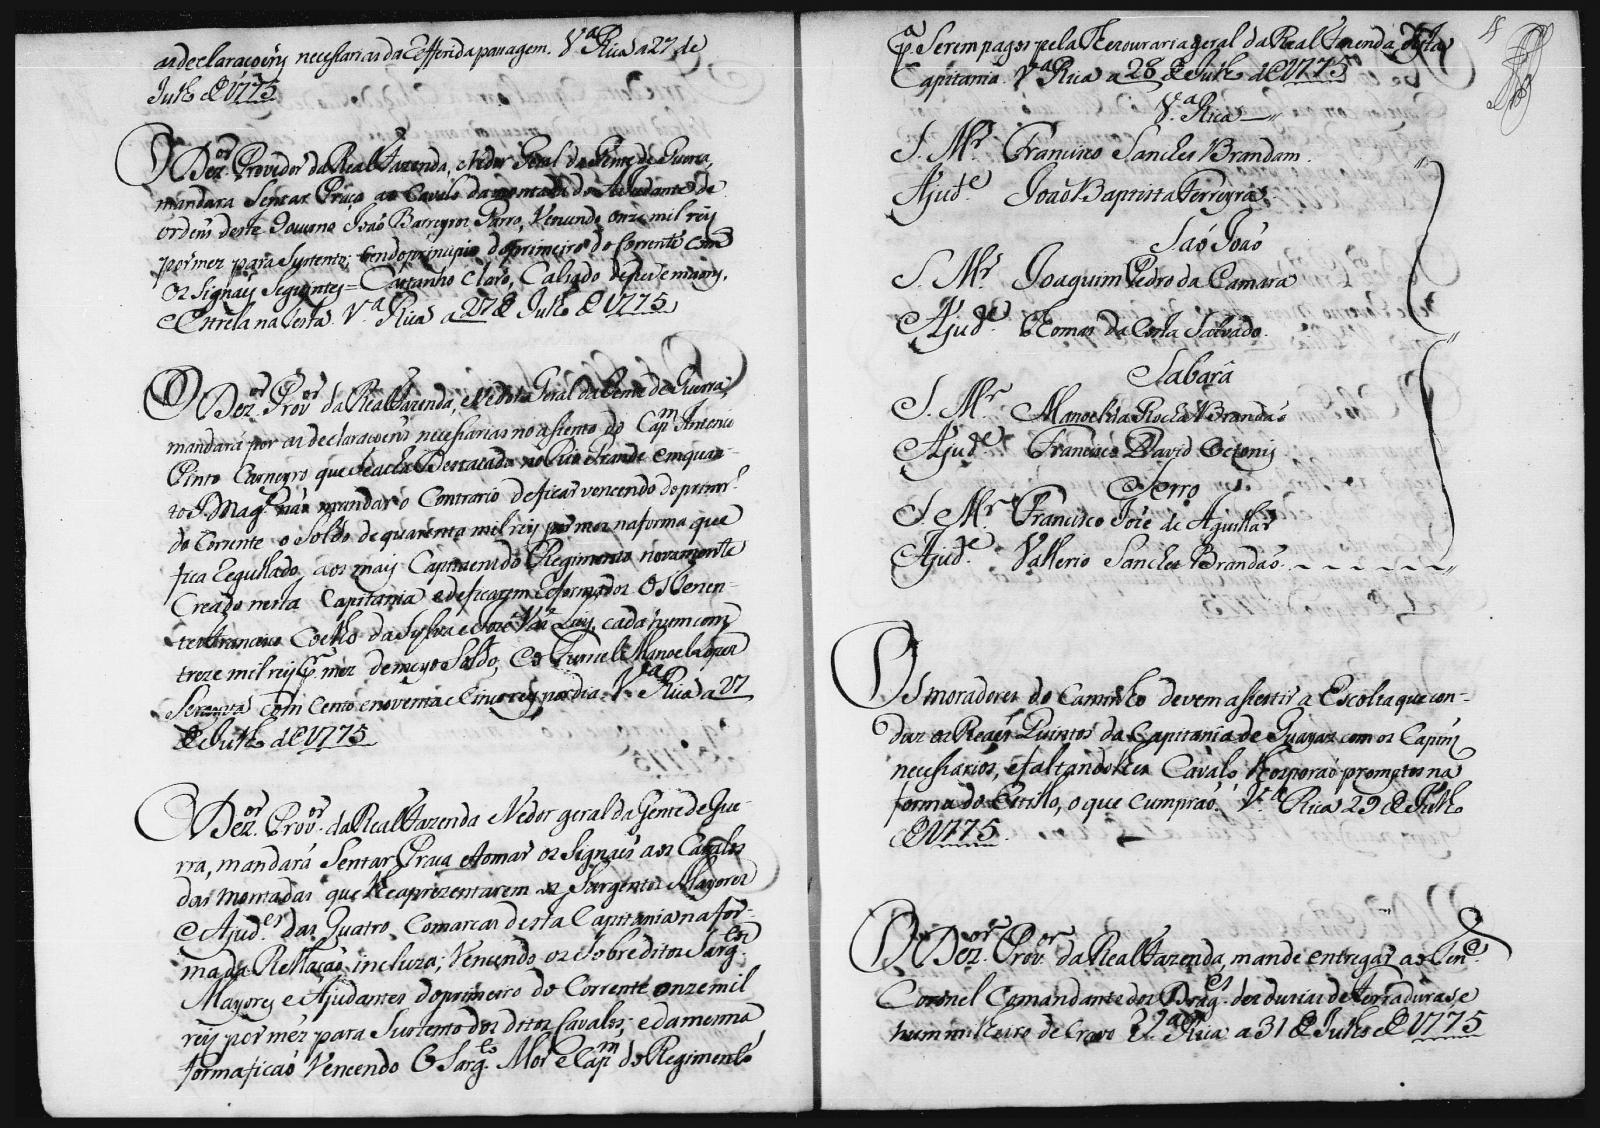 as declaraçoens necessarias da referida passagem. V.ª Rica a 27 de
Julh.º de 1775
O Dez.or Provedor da Real Fazenda, e Vedor Geral da Gente de Guerra,
mandará Sentar Praça ao Cavalo da montada do Ajudante de
ordens deste Governo João Barregros Parro, Vencendo onze mil reys
por mez para Sustento; tendo principio do primeiro do Corrente com
os Signais Seguintes = Castanho Claro, Calçado de
e Estrela na testa. V.ª Rica a 27 de Julh.º de 1775
O Dez.or Prov.or da Real Fazenda, e Vedor Geral da Gente de Guerra,
mandará por as declaracoens necessarias no asiento do Cap.m Antonio
Pinto Carneyro que se acha Destacado no Rio Grande emquan-
to S. Mag.e não mandar o Contrario de ficar vencendo do prim.º
do Corrente o Soldo de quarenta mil reis por mez na forma que
fica regullado aos mais Capitaens do Regimento novamente
Creado nesta Capitania e de ficarem reformados Os Tenen-
tes Francisco Coelho da Sylva e José Vaz Luis, cada hum com
treze mil reis p.r mez de meyo Soldo, e o Furriel Manoel Lopes
com cento e noventa e cinco reis por dia. V.ª Rica a 27
de Julh.º de 1775
O Dez.or Prov.or da Real Fazenda e Vedor geral da Gente de Gue-
rra, mandará Sentar Praça e tomar os Signais aos Cavalos
das montadas que lhe aprezentarem os Sargentos Mayores
e Ajud.es das Quatro Comarcas desta Capitania na for-
ma da Rellação incluza; Vencendo os sobreditos Sarg.tos
Mayores e Ajudantes do primeiro do Corrente onze mil
reys por mez para Sustento dos ditos Cavalos; e da mesma
forma ficaó Vencendo O Sarg.to Mor e Cap.m do Regimento
4
p.ª Serem pagos pela Thezouraria geral da Real Fazenda desta
Capitania. V.ª Rica a 28 de Julh.º de 1775
V.ª Rica
S. M.r Francisco Sanches Brandam.
Ajud.e João Baptista Ferreyra.
Saó Joaó
S. M.r Joaquim Pedro da Camara
Ajud.e Thomas da Costa Salvado.
Sabará
S. M.r Manoel da Rocha Brandaó
Ajud.e Francisco David Octonis
Serro
S. M.r Francisco José de Aguillar
Ajud.e Vallerio Sanches Brandaó
Os moradores do Caminho devem assestir a Escolta que con-
duz os Reaes Quintos da Capitania de Guayaz com os Capins
necessarios, e faltandolhes Cavalo lhos poraó promptos na
forma do Estillo, o que cumpraó. V.ª Rica 29 de Julh.º
de 1775
O Dez.or Prov.or da Real Fazenda, mande entregar ao Ten.e
Coronel Comandante dos Drag.es des duzias de Ferraduras, e
hum milheiro de Cravo V.ª Rica a 31 de Julho de 1775